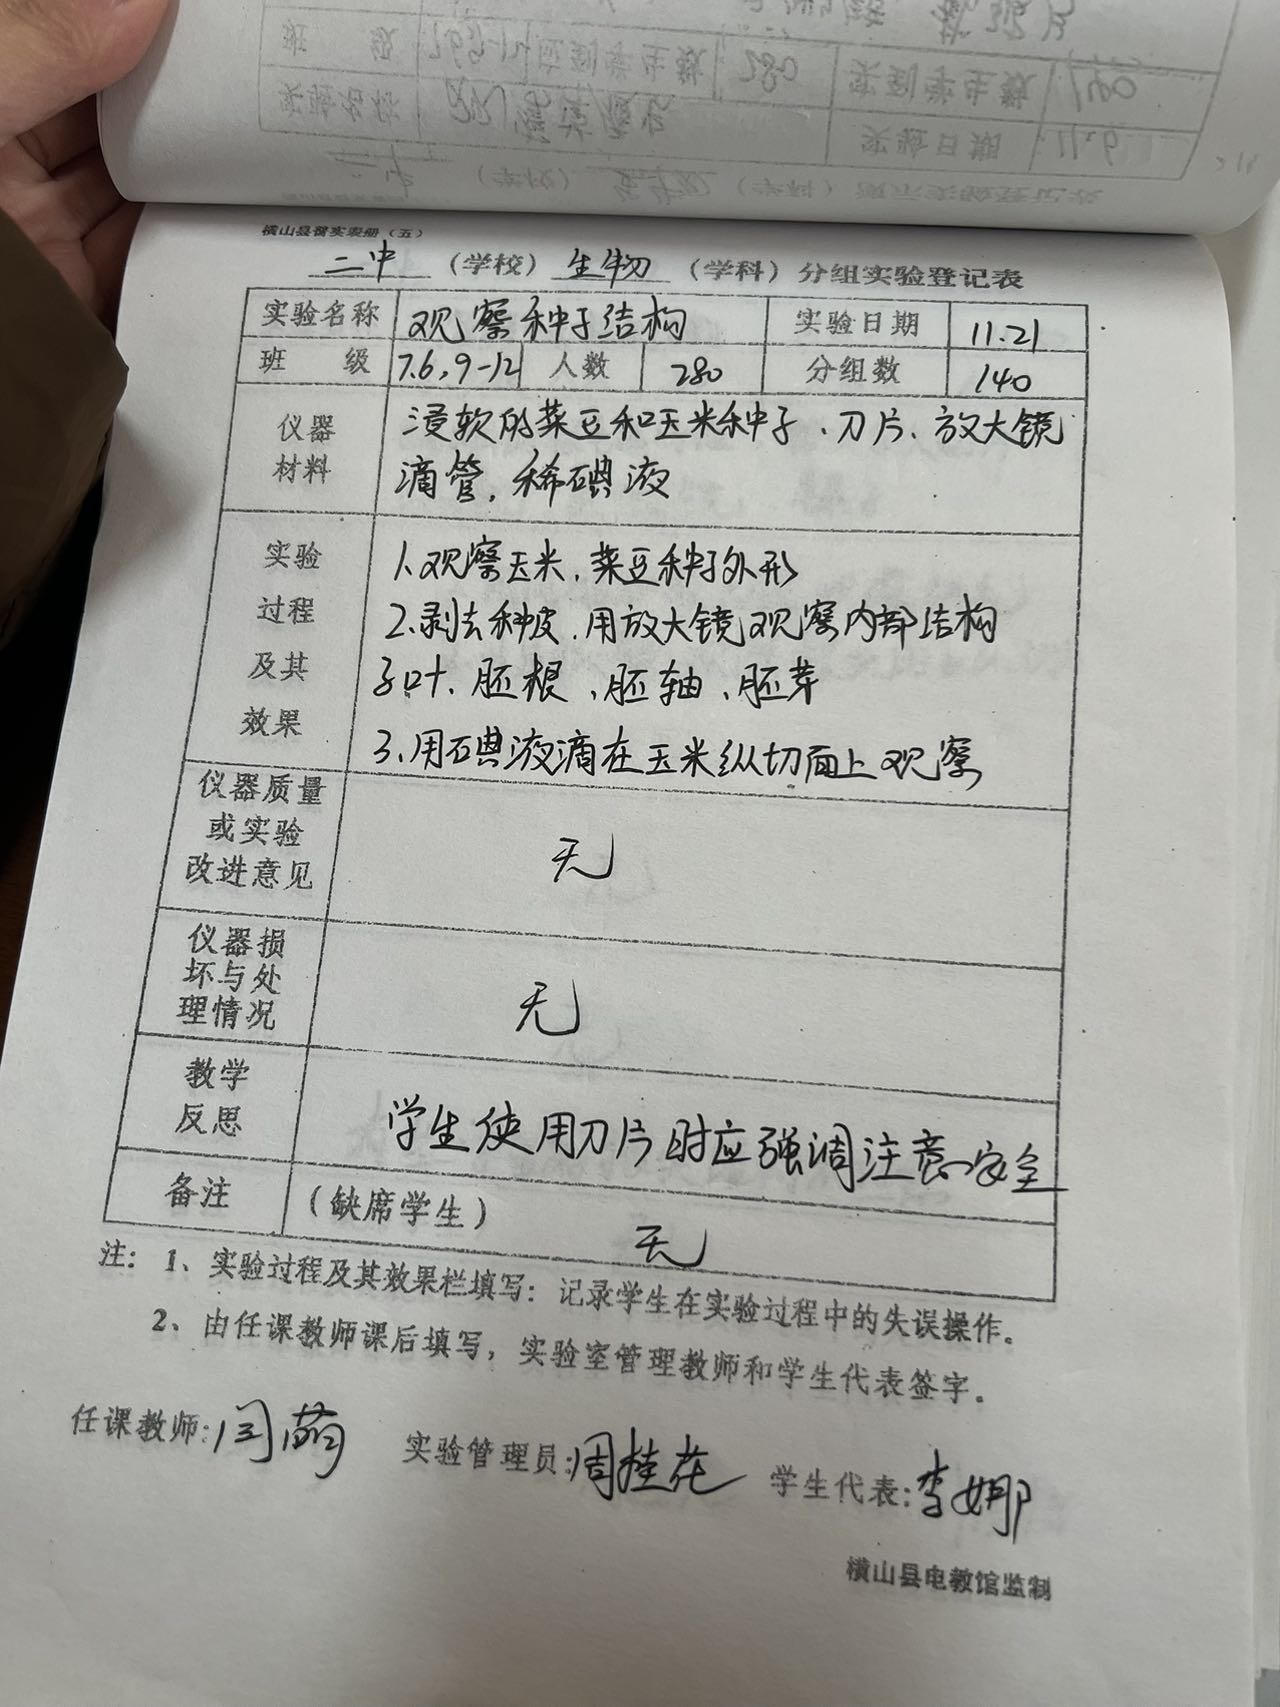 横山县普实表册（五）
二中（学校）生物（学科）分组实验登记表
实验名称 观察种子结构 实验日期 11.21
班 级 7.6,9-12 人数 280 分组数 140
仪器材料 浸软的菜豆和玉米种子、刀片、放大镜
滴管，稀碘液
实验过程及其效果 1.观察玉米、菜豆种子外形
2.剥去种皮、用放大镜观察内部结构
子叶、胚根、胚轴、胚芽
3.用碘液滴在玉米纵切面上观察
仪器质量或实验改进意见 无
仪器损坏与处理情况 无
教学反思 学生使用刀片时应强调注意安全
备注 （缺席学生） 无
注：1、实验过程及其效果栏填写：记录学生在实验过程中的失误操作。
2、由任课教师课后填写，实验室管理教师和学生代表签字。
任课教师:闫萌 实验管理员:周桂花 学生代表:李娜
横山县电教馆监制